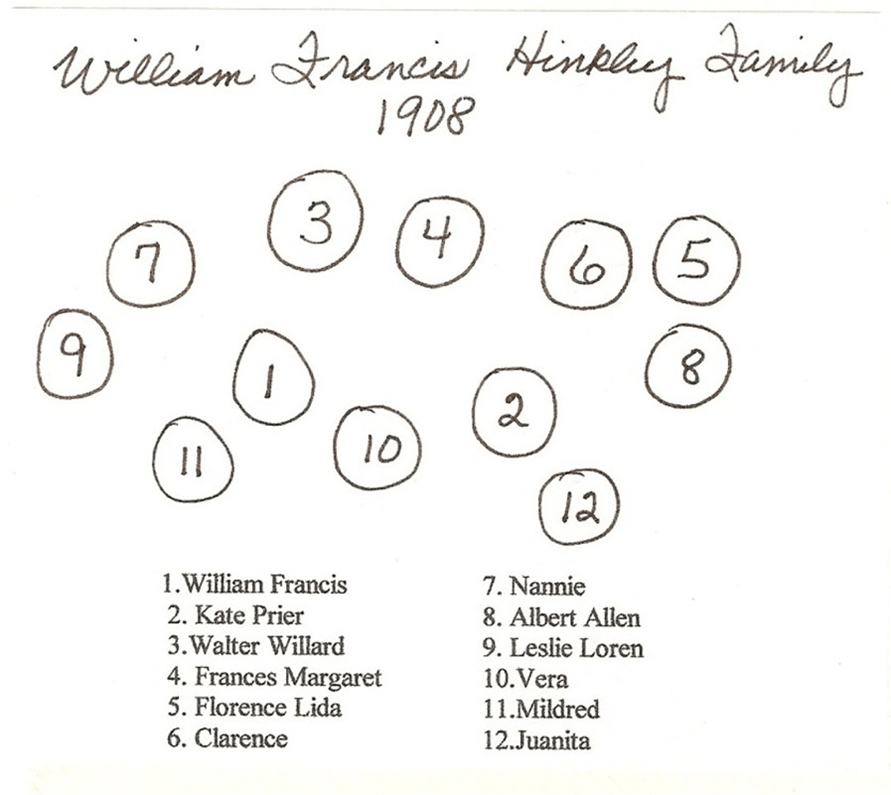 William Francis Hinkley Family
1908
3
4
7
6
5
9
1
8
2
11
10
12
1.William Francis
2. Kate Prier
3.Walter Willard
4. Frances Margaret
5. Florence Lida
6. Clarence
7. Nannie
8. Albert Allen
9. Leslie Loren
10.Vera
11.Mildred
12.Juanita